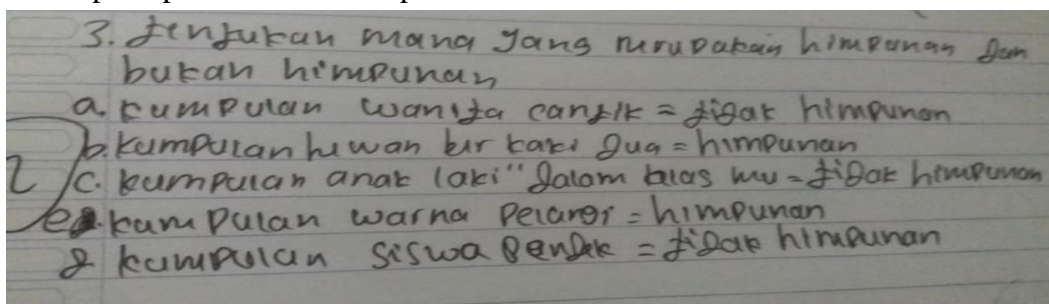 3. tentukan mana yang merupakan himpunan dan
bukan himpunan
a. kumpulan wanita cantik = tidak himpunan
b. kumpulan hewan ber kaki dua = himpunan
2 c. kumpulan anak laki" dalam klas mu = tidak himpunan
e. kumpulan warna pelangi = himpunan
d kumpulan siswa pendek = tidak himpunan